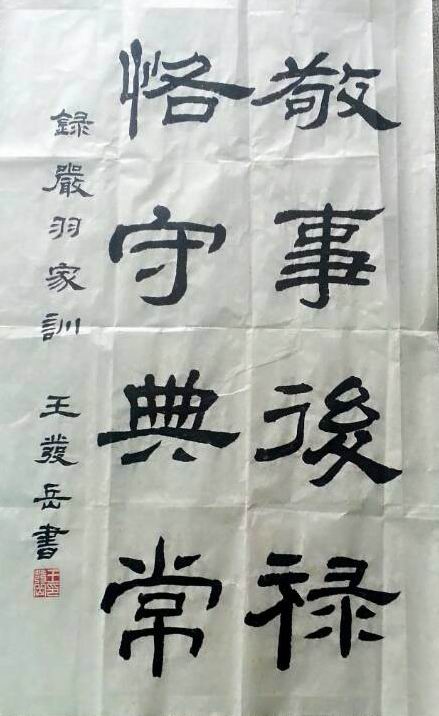 敬事後禄
恪守典常
録嚴羽家訓 王發岳書